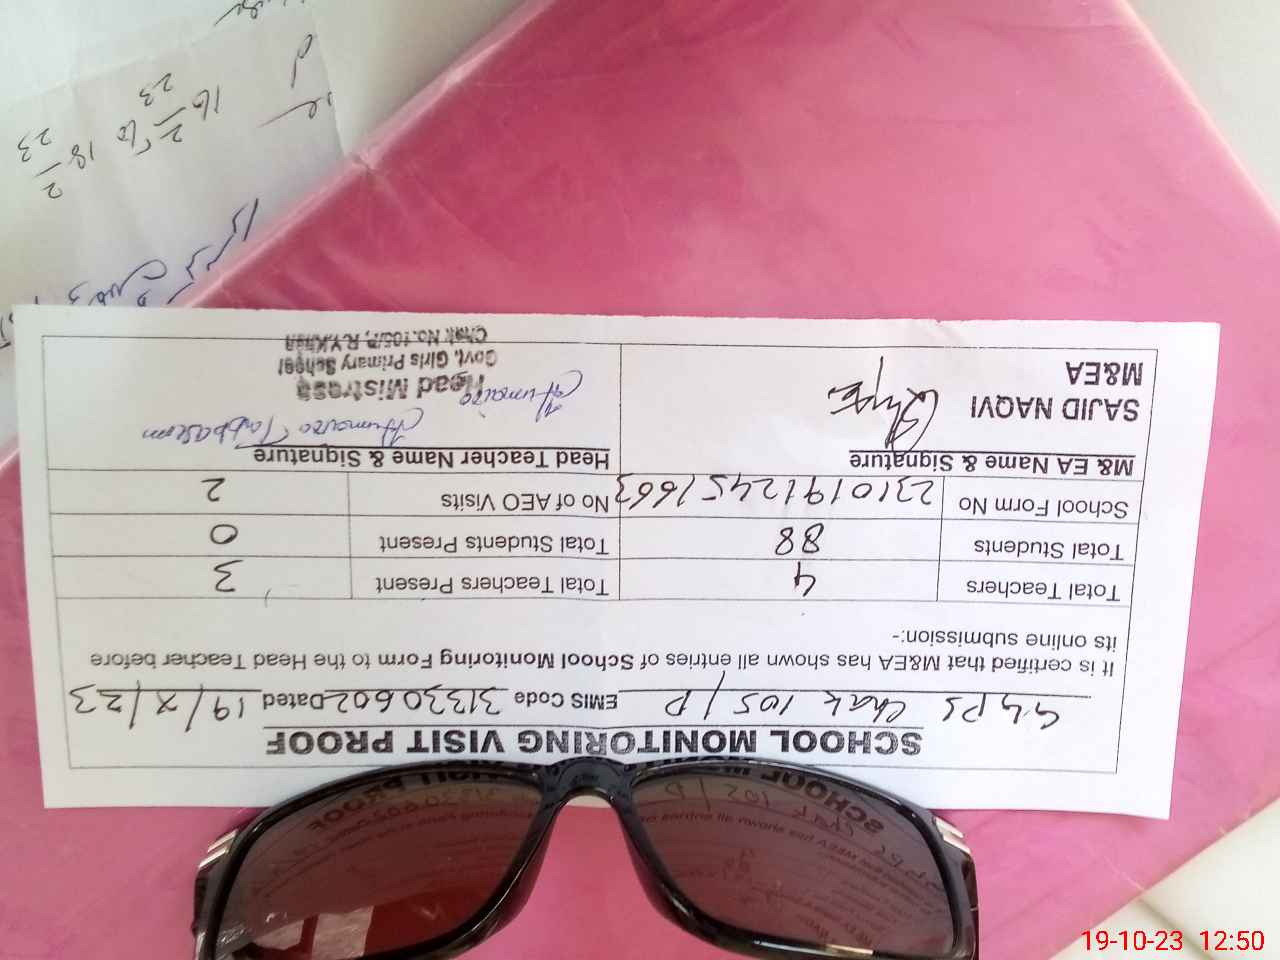 SCHOOL MONITORING VISIT PROOF
GGPS Chak 105/P EMIS Code 31330602 Dated 19/X/23
It is certified that M&EA has shown all entries of School Monitoring Form to the Head Teacher before
its online submission:-
Total Teachers 4 Total Teachers Present 3
Total Students 88 Total Students Present 0
School Form No 23101912451663 No of AEO Visits 2
M& EA Name & Signature Head Teacher Name & Signature
SAJID NAQVI
M&EA
Humaira Tabbasum
Humaira
Head Mistress
Govt. Girls Primary School
Chak No.105/P, R.Y.Khan
16 2/23 to 18 2/23
19-10-23 12:50